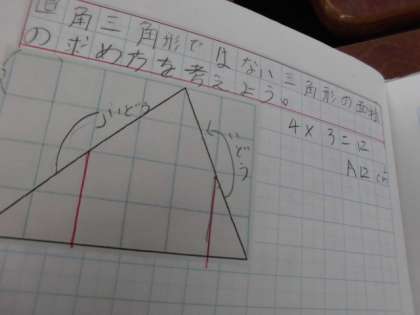 直角三角形ではない三角形の面積
の求め方を考えよう。
いどう
いどう
4×3=12
A12㎠